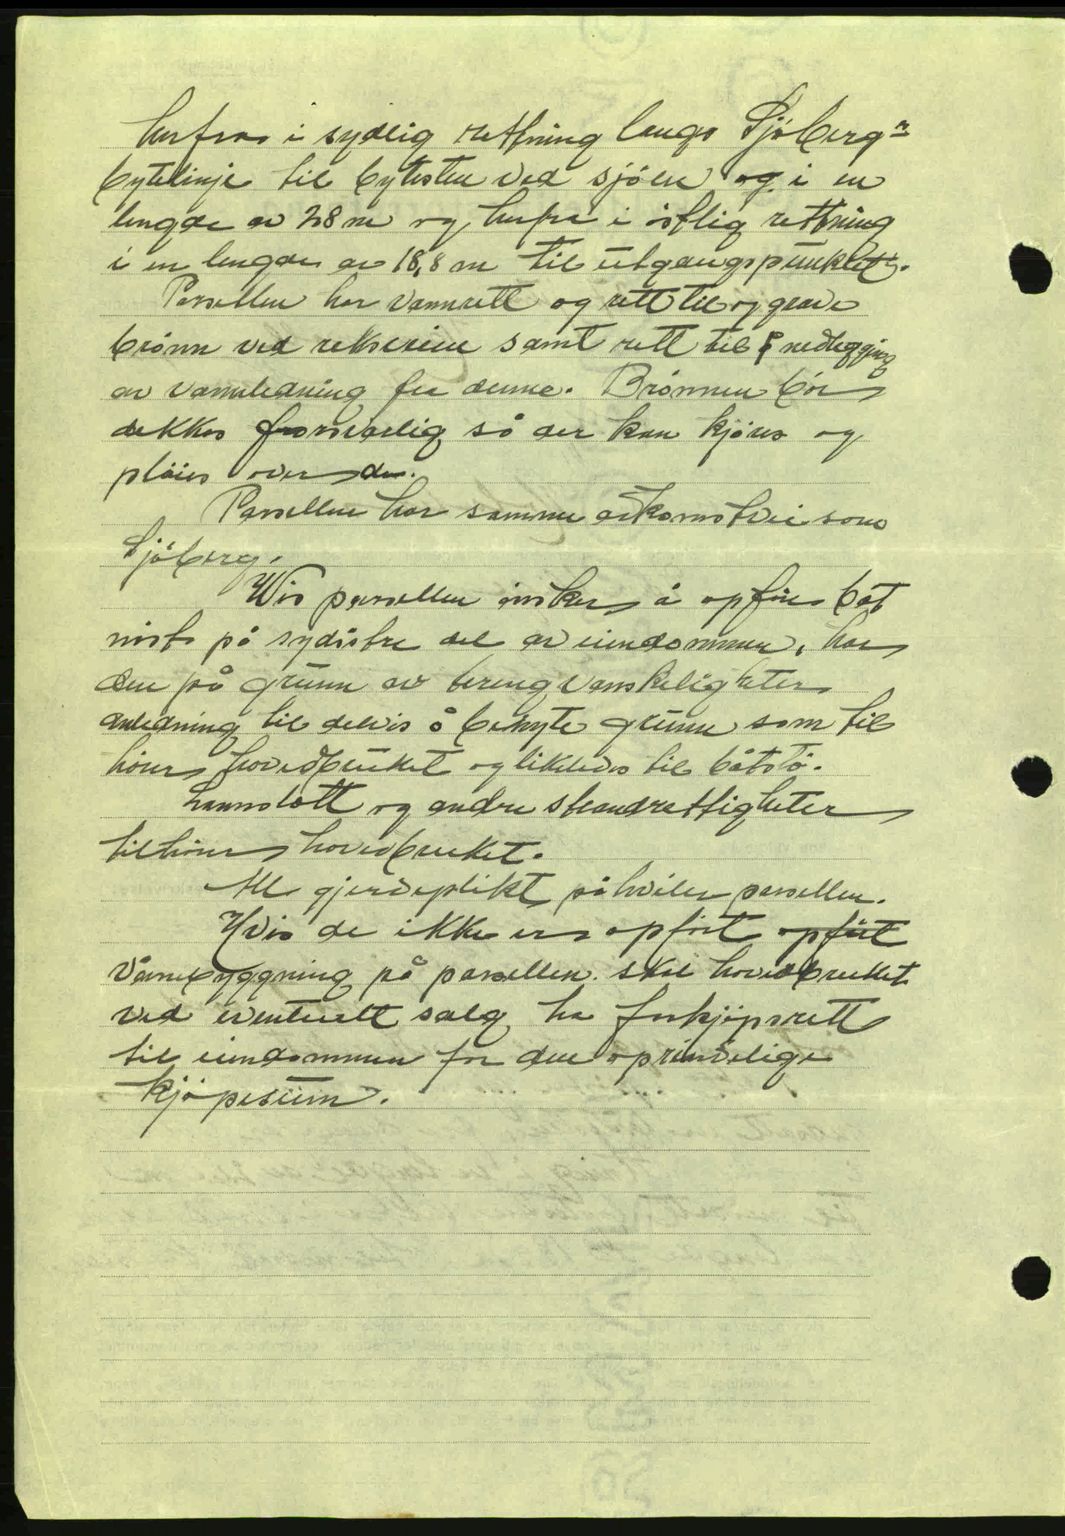 herfra i sydlig rettning langs Sjøbergs
bytelinje til bytesten ved sjøen og i en
lengde av 28 m og herfra i østlig rettning
i en lengde av 18,8 m til utgangspunktet.
Parsellen har vannrett og rett til og grave
brønn ved samt rett til nedlegging
av vannledning fra denne. Brønnen bør
dekkes forsvarlig så der kan kjøres og
pløies over den.
Parsellen har samme adkomstvei som
Sjøberg.
Hvis parsellen ønsker å opføre båt
nøst på sydøstre del av eiendommen, har
den på grunn av terengvanskeligheter
anledning til delvis å benytte grunn som til
hører hovedbruket og likeledes til båtstø.
Landslott og andre strandrettigheter
tilhører hovedbruket.
All gjerdeplikt påhviler parsellen.
Hvis de ikke er opført opført
vånebyggning på parsellen skal hovedbruket
ved eventuelt salg ha forkjøpsrett
til eiendommen for den oprindelige
kjøpesum.